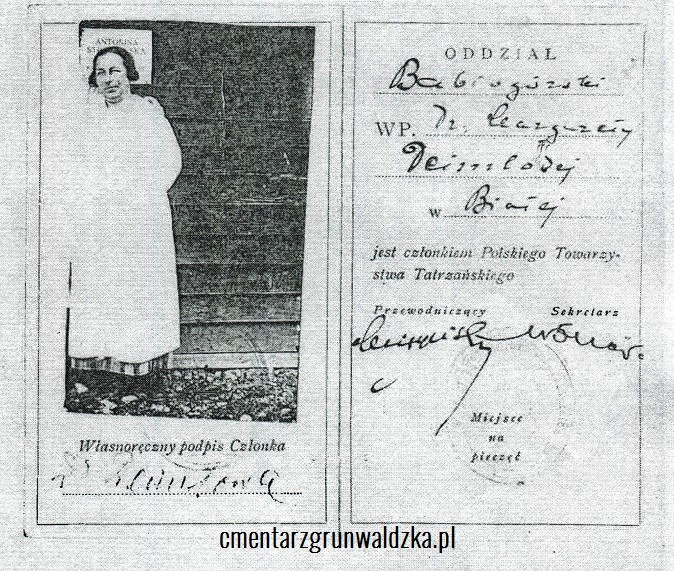 ANTONINA
Własnoręczny podpis Członka
ODDZIAŁ
Babiogórski
WP. Dr.
w Białej
jest członkiem Polskiego Towarzy-
stwa Tatrzańskiego
Przewodniczący Sekretarz
Miejsce
na
pieczęć
cmentarzgrunwaldzka.pl